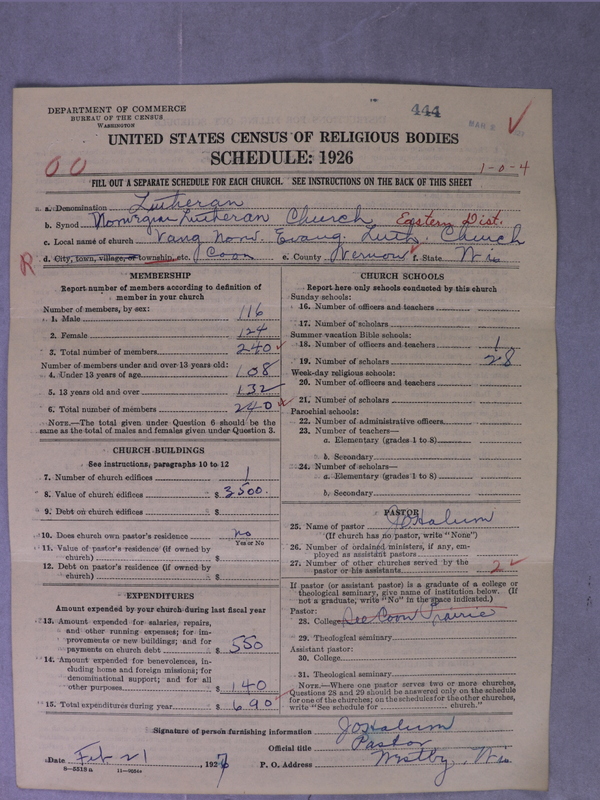 DEPARTMENT OF COMMERCE
BUREAU OF THE CENSUS
WASHINGTON
444
MAR
UNITED STATES CENSUS OF RELIGIOUS BODIES
SCHEDULE: 1926
1-0-4
FILL OUT A SEPARATE SCHEDULE FOR EACH CHURCH. SEE INSTRUCTIONS ON THE BACK OF THIS SHEET
a. Denomination Lutheran
b. Synod Norwegian Lutheran Church Eastern Dist.
c. Local name of church Vang Norw. Evang. Luth. Church
R
d. City, town, village, or township, etc. Coon e. County Vernon f. State Wis
MEMBERSHIP
Report number of members according to definition of member in your church
Number of members, by sex:
1. Male 116
2. Female 124
3. Total number of members 240
Number of members under and over 13 years old:
4. Under 13 years of age 108
5. 13 years old and over 132
6. Total number of members 240
NOTE.—The total given under Question 6 should be the same as the total of males and females given under Question 3.
CHURCH BUILDINGS
See instructions, paragraphs 10 to 12
7. Number of church edifices 1
8. Value of church edifices $ 3500.
9. Debt on church edifices $
10. Does church own pastor's residence? no
Yes or No
11. Value of pastor's residence (if owned by church) $
12. Debt on pastor's residence (if owned by church) $
EXPENDITURES
Amount expended by your church during last fiscal year
13. Amount expended for salaries, repairs, and other running expenses; for improvements or new buildings; and for payments on church debt $ 550
14. Amount expended for benevolences, including home and foreign missions; for denominational support; and for all other purposes $ 140
15. Total expenditures during year $ 690
CHURCH SCHOOLS
Report here only schools conducted by this church
Sunday schools:
16. Number of officers and teachers
17. Number of scholars
Summer vacation Bible schools:
18. Number of officers and teachers 1
19. Number of scholars 28
Week-day religious schools:
20. Number of officers and teachers
21. Number of scholars
Parochial schools:
22. Number of administrative officers
23. Number of teachers—
a. Elementary (grades 1 to 8)
b. Secondary
24. Number of scholars—
a. Elementary (grades 1 to 8)
b. Secondary
PASTOR
25. Name of pastor JO Halum
(If church has no pastor, write "None")
26. Number of ordained ministers, if any, employed as assistant pastors
27. Number of other churches served by the pastor or his assistants 2
If pastor (or assistant pastor) is a graduate of a college or theological seminary, give name of institution below. (If not a graduate, write "No" in the space indicated.)
Pastor:
28. College See Coon Prairie
29. Theological seminary
Assistant pastor:
30. College
31. Theological seminary
NOTE.—Where one pastor serves two or more churches, Questions 28 and 29 should be answered only on the schedule for one of the churches; on the schedules for the other churches, write "See schedule for church."
Signature of person furnishing information JO Halum
Official title Pastor
Date Feb 21, 1927 P. O. Address Westby, Wis
8—5518a 11—9024a